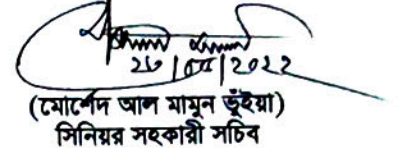 ২৬/০৫/২০২২
(মোর্শেদ আল মামুন ভূঁইয়া)
সিনিয়র সহকারী সচিব